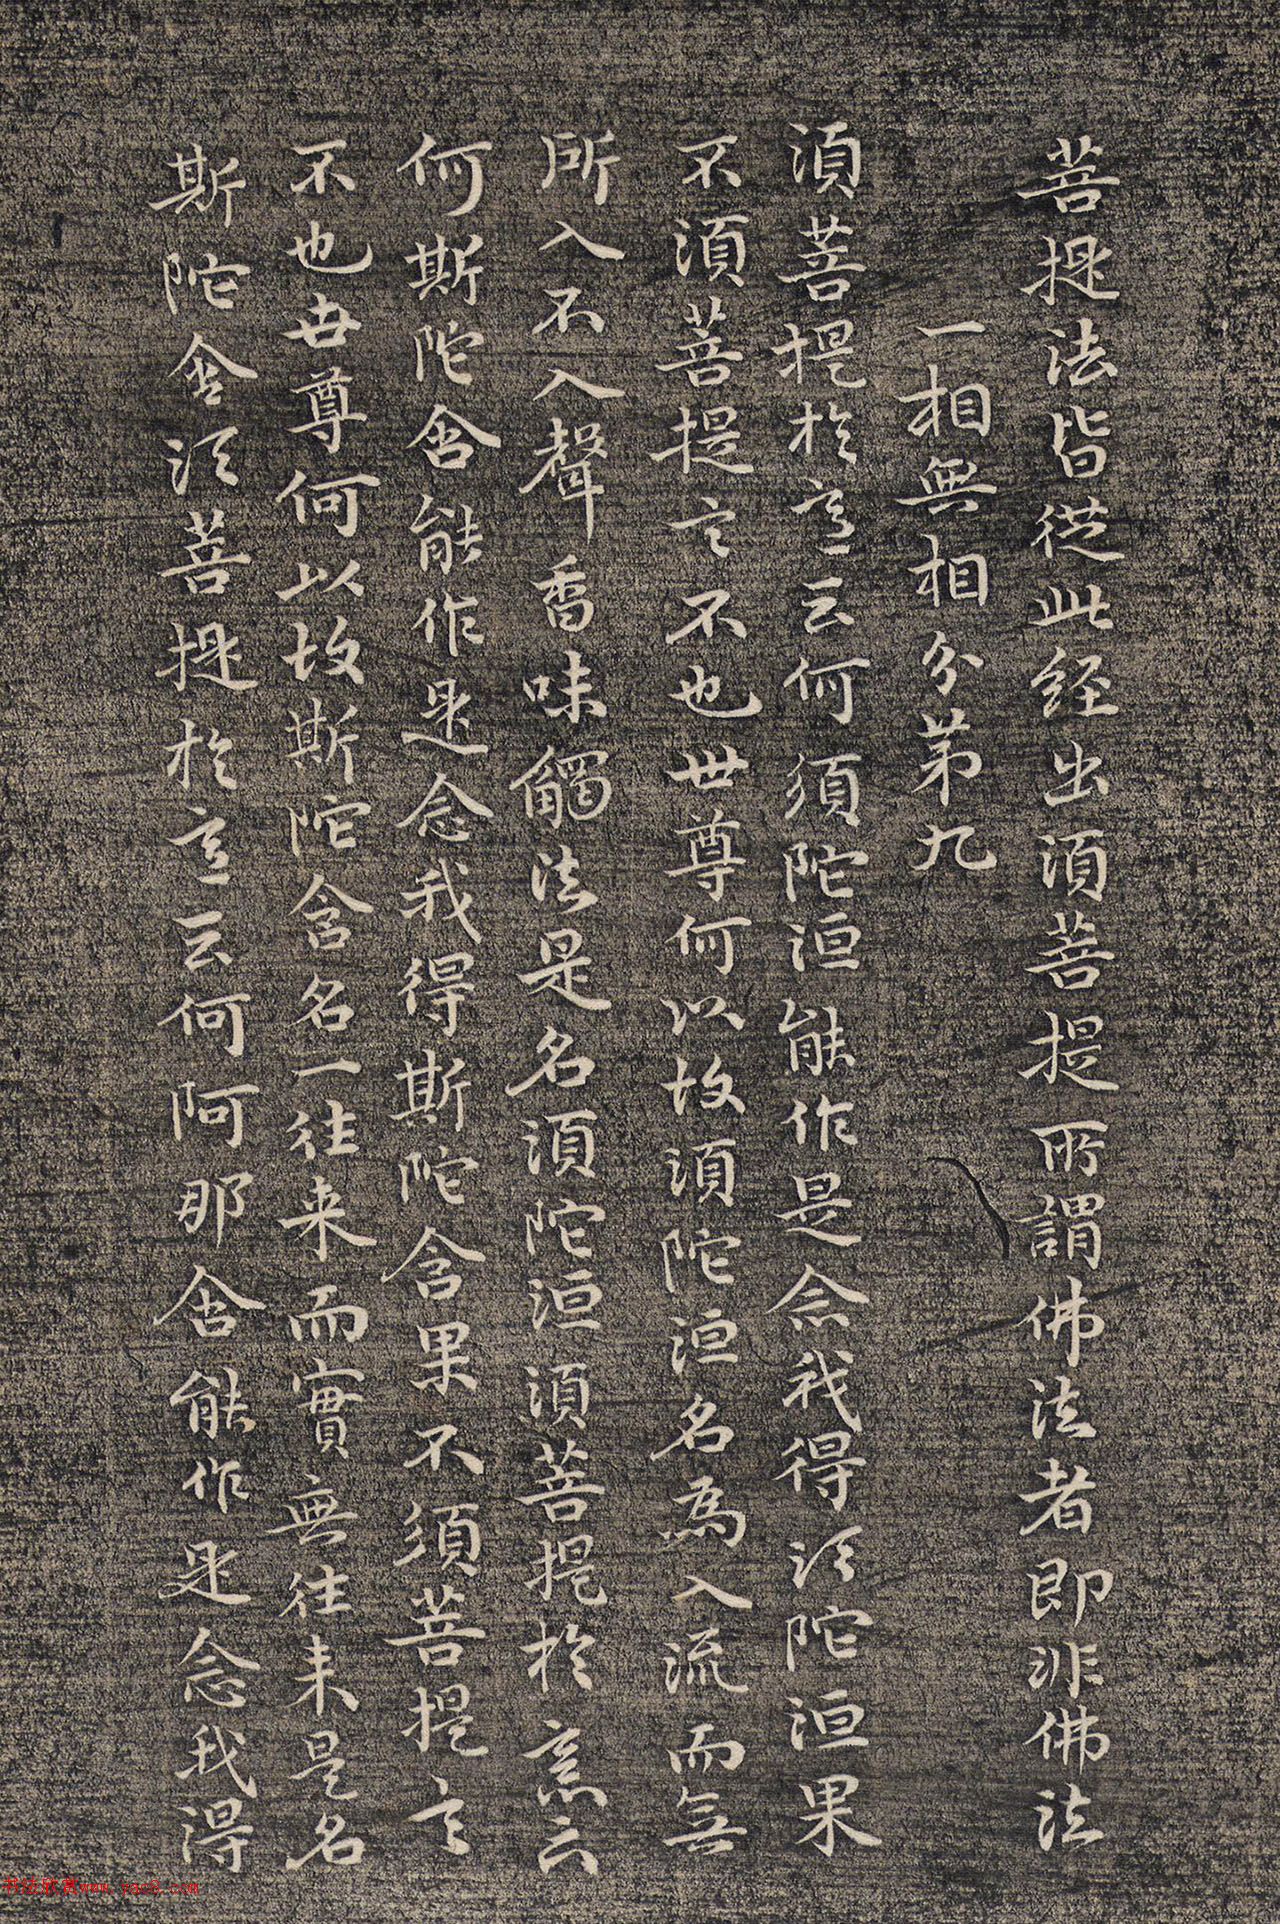 菩提法皆從此經出須菩提所謂佛法者即非佛法
一相無相分第九
須菩提於意云何須陀洹能作是念我得須陀洹果
不須菩提言不也世尊何以故須陀洹名為入流而無
所入不入聲香味觸法是名須陀洹須菩提於意云
何斯陀含能作是念我得斯陀含果不須菩提言
不也世尊何以故斯陀含名一往来而實無往来是名
斯陀含須菩提於意云何阿那含能作是念我得
书法欣赏www.yac8.com